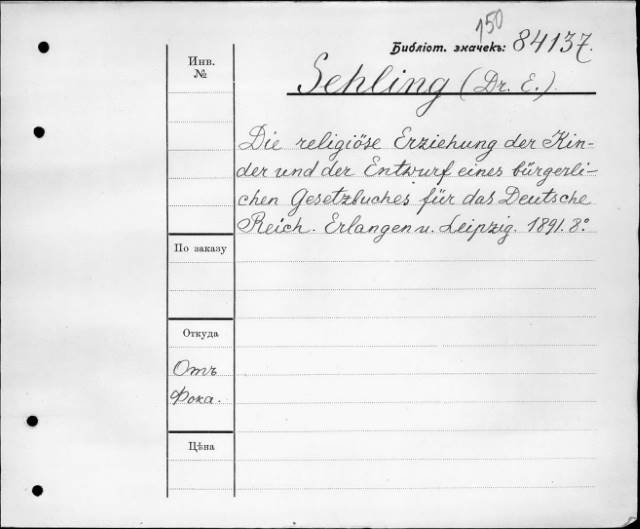 150
Библіот. значекъ: 84137.
Инв.
№
Sehling (Dr. E.).
Die religiöse Erziehung der Kin-
der und der Entwurf eines bürgerli-
chen Gesetzbuches für das Deutsche
Reich. Erlangen u. Leipzig. 1891. 8.°
По заказу
Откуда
Отъ
Фока.
Цѣна